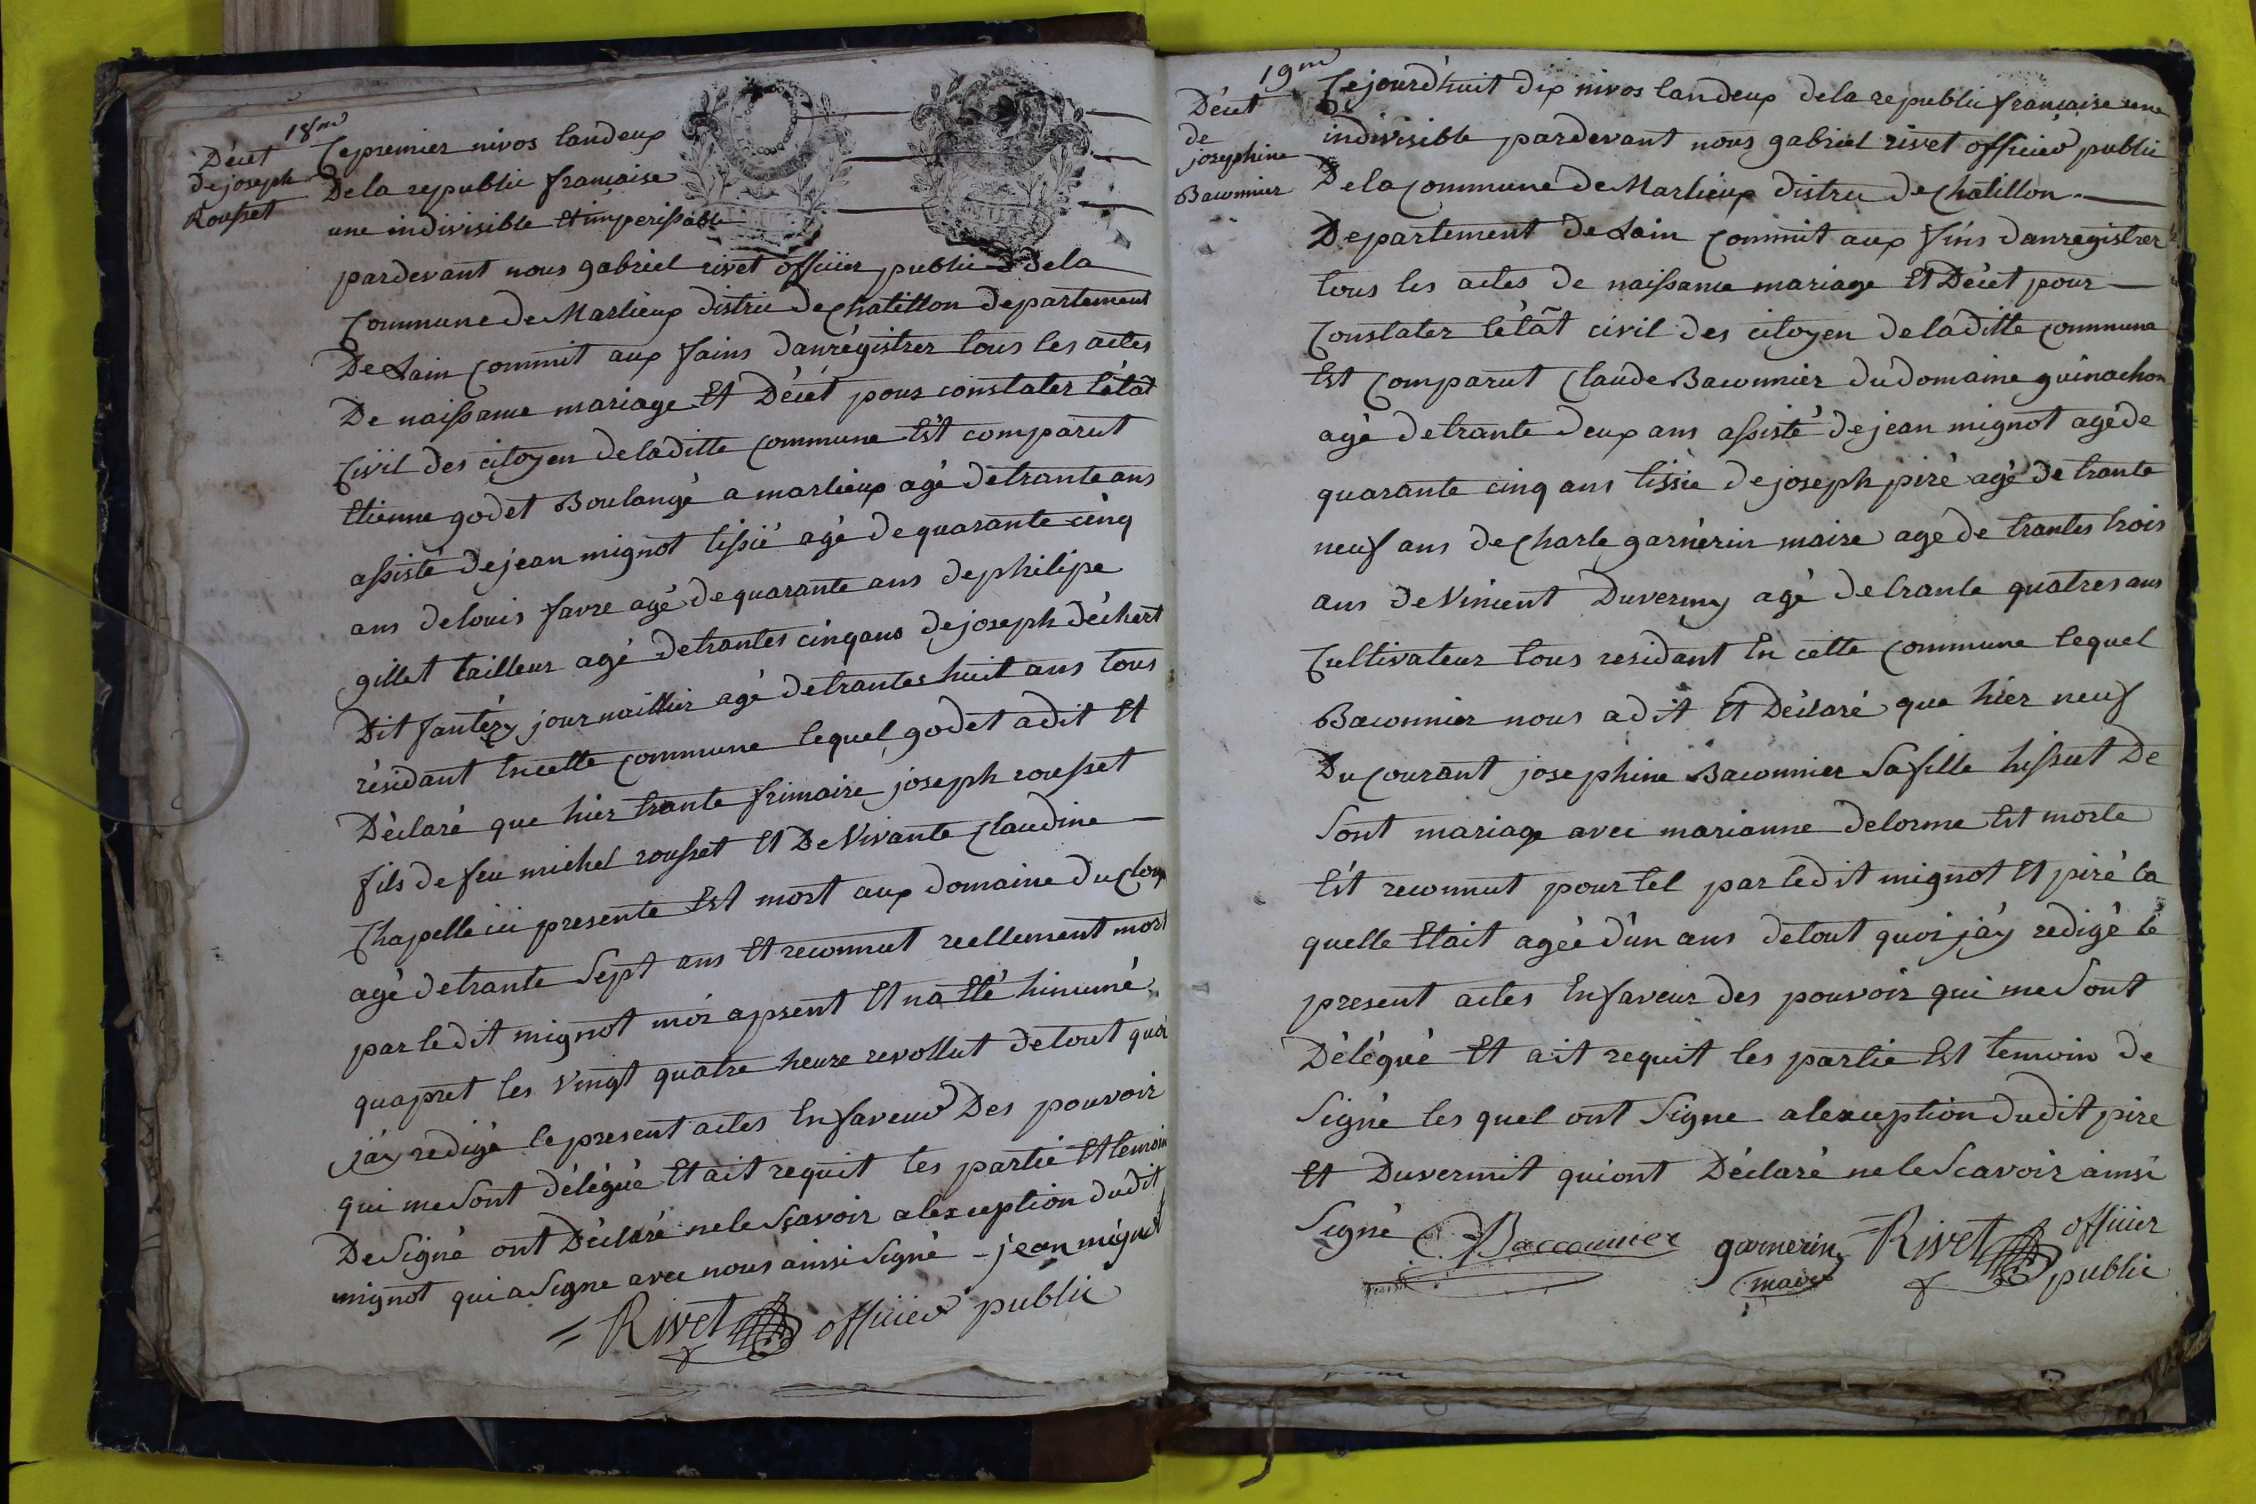 18me
Décet
de joseph
Rousset
Ce premier nivos landeux
De la republic francaise
une indivisible Et imperissable
pardevant nous gabriel rivet officier public dela
Commune de Marlieux distric de chatillon departement
De Lain Commit aux fains danrégistrer tous les actes
De naissance mariage Et Décét pour constater létât
Civil des citoyen deladitte Commune Est comparut
Etienne godet Boulangé a marlieux agé de trante ans
assisté de jean mignot tissié agé de quarante cinq
ans de louis favre agé de quarante ans de philipe
gillet tailleur agé de trantes cinq ans de joseph déchert
Dit fantézy journaillier agé de trantes huit ans tous
résidant En cette Commune lequel godet a dit Et
Déclaré que hier trante frimaire joseph rousset
fils de feu michel rousset Et De Vivante Claudine
Chapelle ici presente Est mort aux domaine du Cloux
agé de trante Sept ans Et reconnut reellement mort
par le dit mignot moi apsent Et na Eté hinumé
quapret les Vingt quatre heure revollut de tout quoi
jáy redigé le present actes En faveur Des pouvoir
qui me Sont délégué Et ait requit les partie Et temoin
De Signé ont Déclaré ne le Sçavoir a lexception dudit
mignot qui a Signe avec nous ainsi Signé - jean mignot
= Rivet officier public
19me
Décet
de
josephine
Baconnier
Cejourdhuit dix nivos landeux dela republic francaise une
indivisible pardevant nous gabriel rivet officier public
De la Commune de Marlieux distric de Chatillon
Departement de Lain Commit aux fins danregistrer
tous les actes de naissance mariage Et Décet pour
Constater létât civil des citoyen de laditte Commune
Est Comparut Claude Baconnier du domaine guinachon
agé de trante deux ans assisté de jean mignot agé de
quarante cinq ans tissie de joseph piré agé de trante
neuf ans de Charle garnérin maire agé de trantes trois
ans de Vincent Duverny agé de trante quatres ans
Cultivateur tous residant En cette Commune lequel
Baconnier nous a dit Et Déclaré que hier neuf
Du Courant josephine Baconnier Sa fille hissut De
Sont mariage avec marianne delorme Est morte
Et reconnut pour tel par ledit mignot Et piré la
quelle Etait agée d'un ans de tout quoi jáy redigé le
present actes En faveur des pouvoir qui me Sont
Délégué Et ait requit les partie Est temoin de
Signé les quel ont Signe a lexception dudit pire
Et Duvernit qui ont Déclaré ne le Scavoir ainsi
Signé C Bacconnier garnerin maire = Rivet officier
public